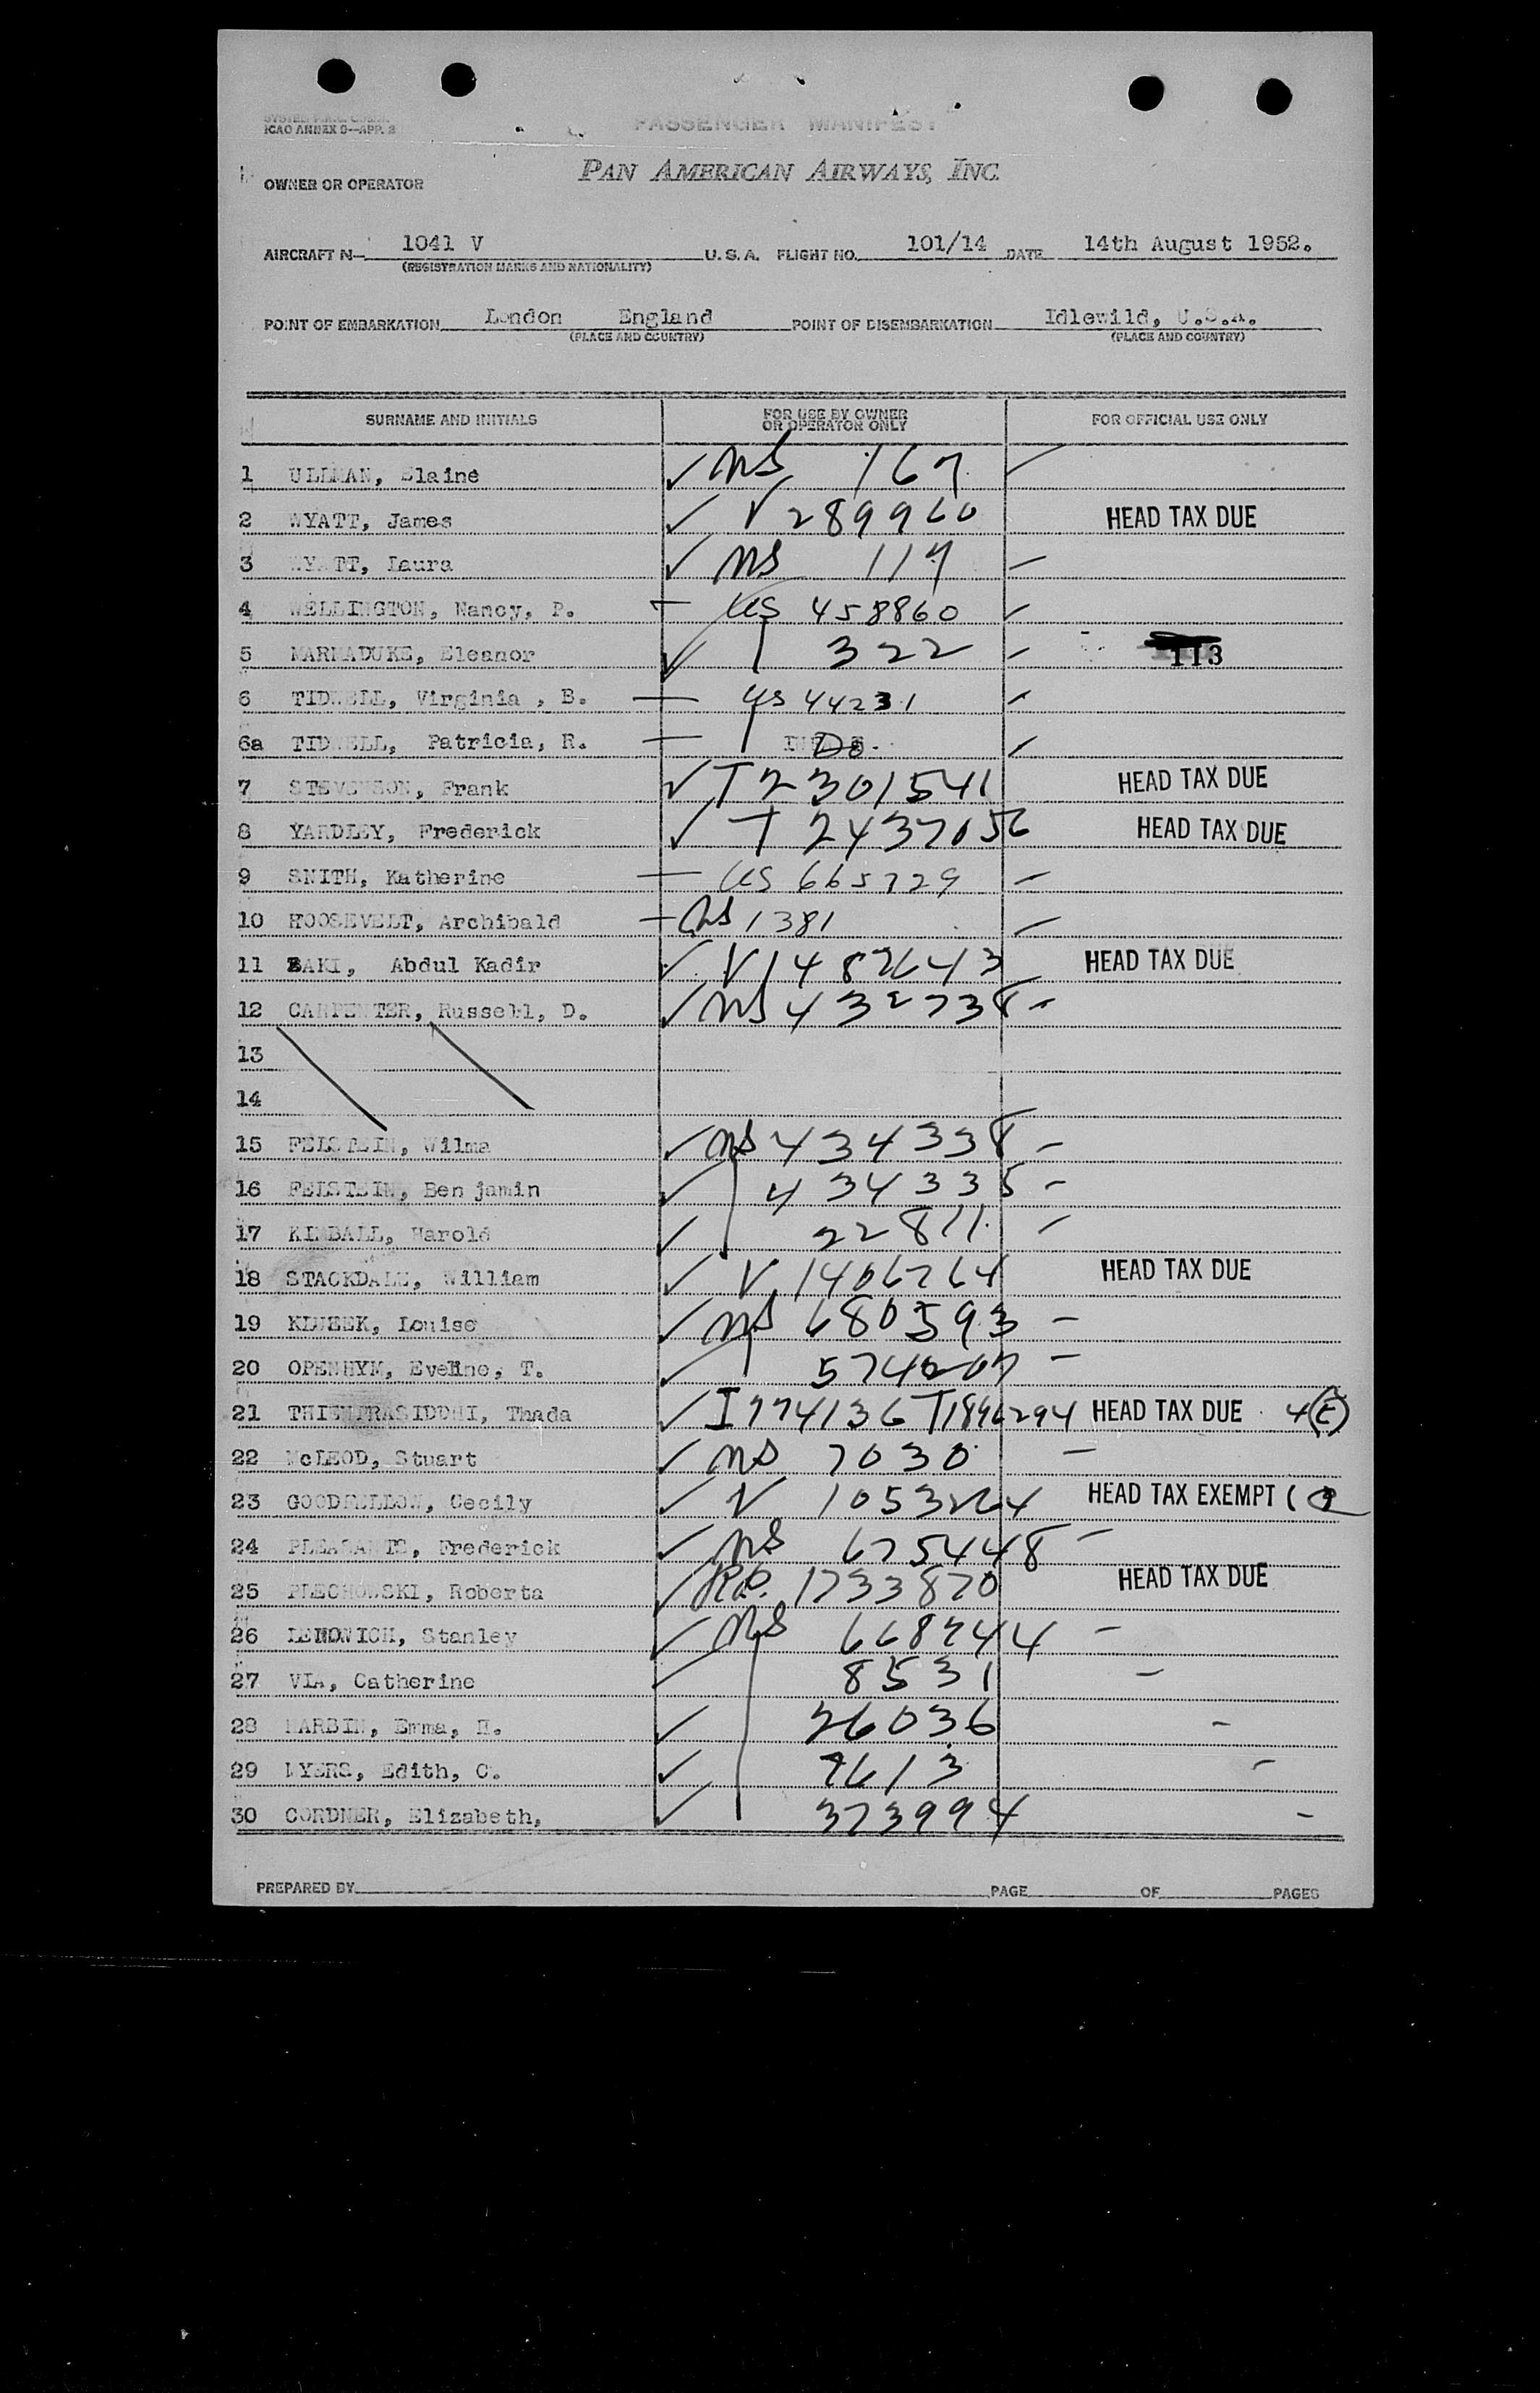 ICAO ANNEX 9—APP. 3
PASSENGER MANIFEST
OWNER OR OPERATOR PAN AMERICAN AIRWAYS, INC.
AIRCRAFT N— 1041 V U. S. A. FLIGHT NO. 101/14 DATE 14th August 1952.
(REGISTRATION MARKS AND NATIONALITY)
POINT OF EMBARKATION London England POINT OF DISEMBARKATION Idlewild, U.S.A.
(PLACE AND COUNTRY) (PLACE AND COUNTRY)
SURNAME AND INITIALS FOR USE BY OWNER OR OPERATOR ONLY FOR OFFICIAL USE ONLY
1 ULLMAN, Elaine ns 167
2 WYATT, James V 289960 HEAD TAX DUE
3 WYATT, Laura ns 117
4 WELLINGTON, Nancy, P. US 458860
5 MARMADUKE, Eleanor 322 113
6 TIDWELL, Virginia , B. US 44231
6a TIDWELL, Patricia, R. Do.
7 STEVENSON, Frank T 2301541 HEAD TAX DUE
8 YARDLEY, Frederick T 2437056 HEAD TAX DUE
9 SNITH, Katherine US 665729
10 ROOSEVELT, Archibald 1381
11 BAKI, Abdul Kadir V 1482643 HEAD TAX DUE
12 CARPENTER, Russell, D. ns 432738
13
14
15 FELSTEIN, Wilma ns 434338
16 FELSTEIN, Benjamin 434335
17 KIMBALL, Harold 22811
18 STACKDALE, William V 1406764 HEAD TAX DUE
19 KLUSEK, Louise ns 680593
20 OPENHYM, Eveline, T. 574207
21 THIEMPRASIDDHI, Thada I774136 T1896294 HEAD TAX DUE 4
22 McLEOD, Stuart ns 7030
23 GOODFELLOW, Cecily V 1053264 HEAD TAX EXEMPT
24 PLEASANTS, Frederick ns 675448
25 PLECHOWSKI, Roberta R.P. 1733870 HEAD TAX DUE
26 LENOWICH, Stanley ns 668744
27 VIA, Catherine 8531
28 HARBIN, Emma, H. 26036
29 MYERS, Edith, C. 7613
30 CORDNER, Elizabeth, 373994
PREPARED BY PAGE OF PAGES